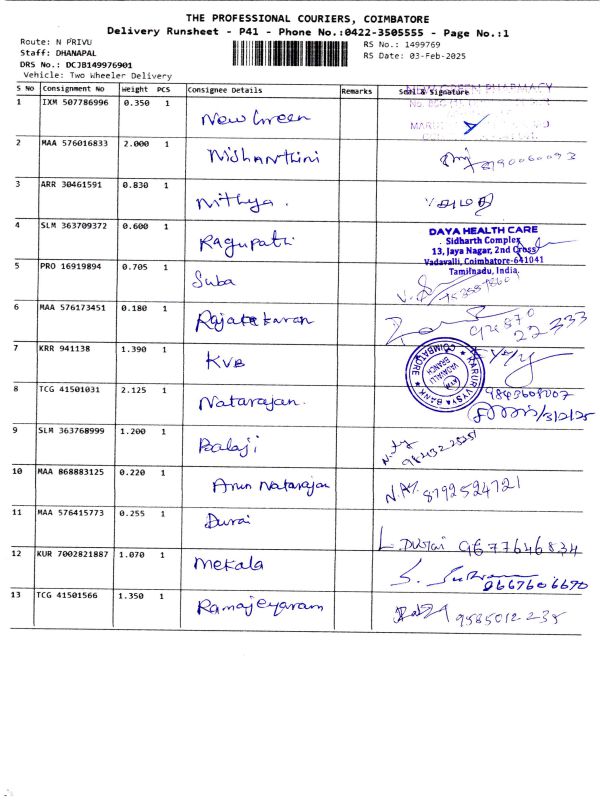 THE PROFESSIONAL COURIERS, COIMBATORE
Delivery Runsheet - P41 - Phone No.:0422-3505555 - Page No.:1
Route: N PRIVU
RS No.: 1499769
Staff: DHANAPAL
RS Date: 03-Feb-2025
DRS No.: DCJB149976901
Vehicle: Two Wheeler Delivery
S No Consignment No Weight PCS Consignee Details Remarks Seal & Signature
1 IXM 507786996 0.350 1 New Green
NEW GREEN PHARMACY
2 MAA 576016833 2.000 1 Nishanthini
3 ARR 30461591 0.830 1 Nithya.
4 SLM 363709372 0.600 1 Ragupathi
DAYA HEALTH CARE
Sidharth Complex
13, Jaya Nagar, 2nd Cross
Vadavalli, Coimbatore-641041
Tamilnadu, India.
5 PRO 16919894 0.705 1 Suba
6 MAA 576173451 0.180 1
92870
22333
7 KRR 941138 1.390 1 KVB
KARUR VYSYA BANK
VADAVALLI
BRANCH
COIMBATORE
8 TCG 41501031 2.125 1 Natarajan.
9843608007
3/2/25
9 SLM 363768999 1.200 1 Balaji
10 MAA 868883125 0.220 1 Arun Natarajan
8792524721
11 MAA 576415773 0.255 1 Durai
L. Durai 9677646834
12 KUR 7002821887 1.070 1 Mekala
9667606670
13 TCG 41501566 1.350 1 Ramajeyaram
9585012235